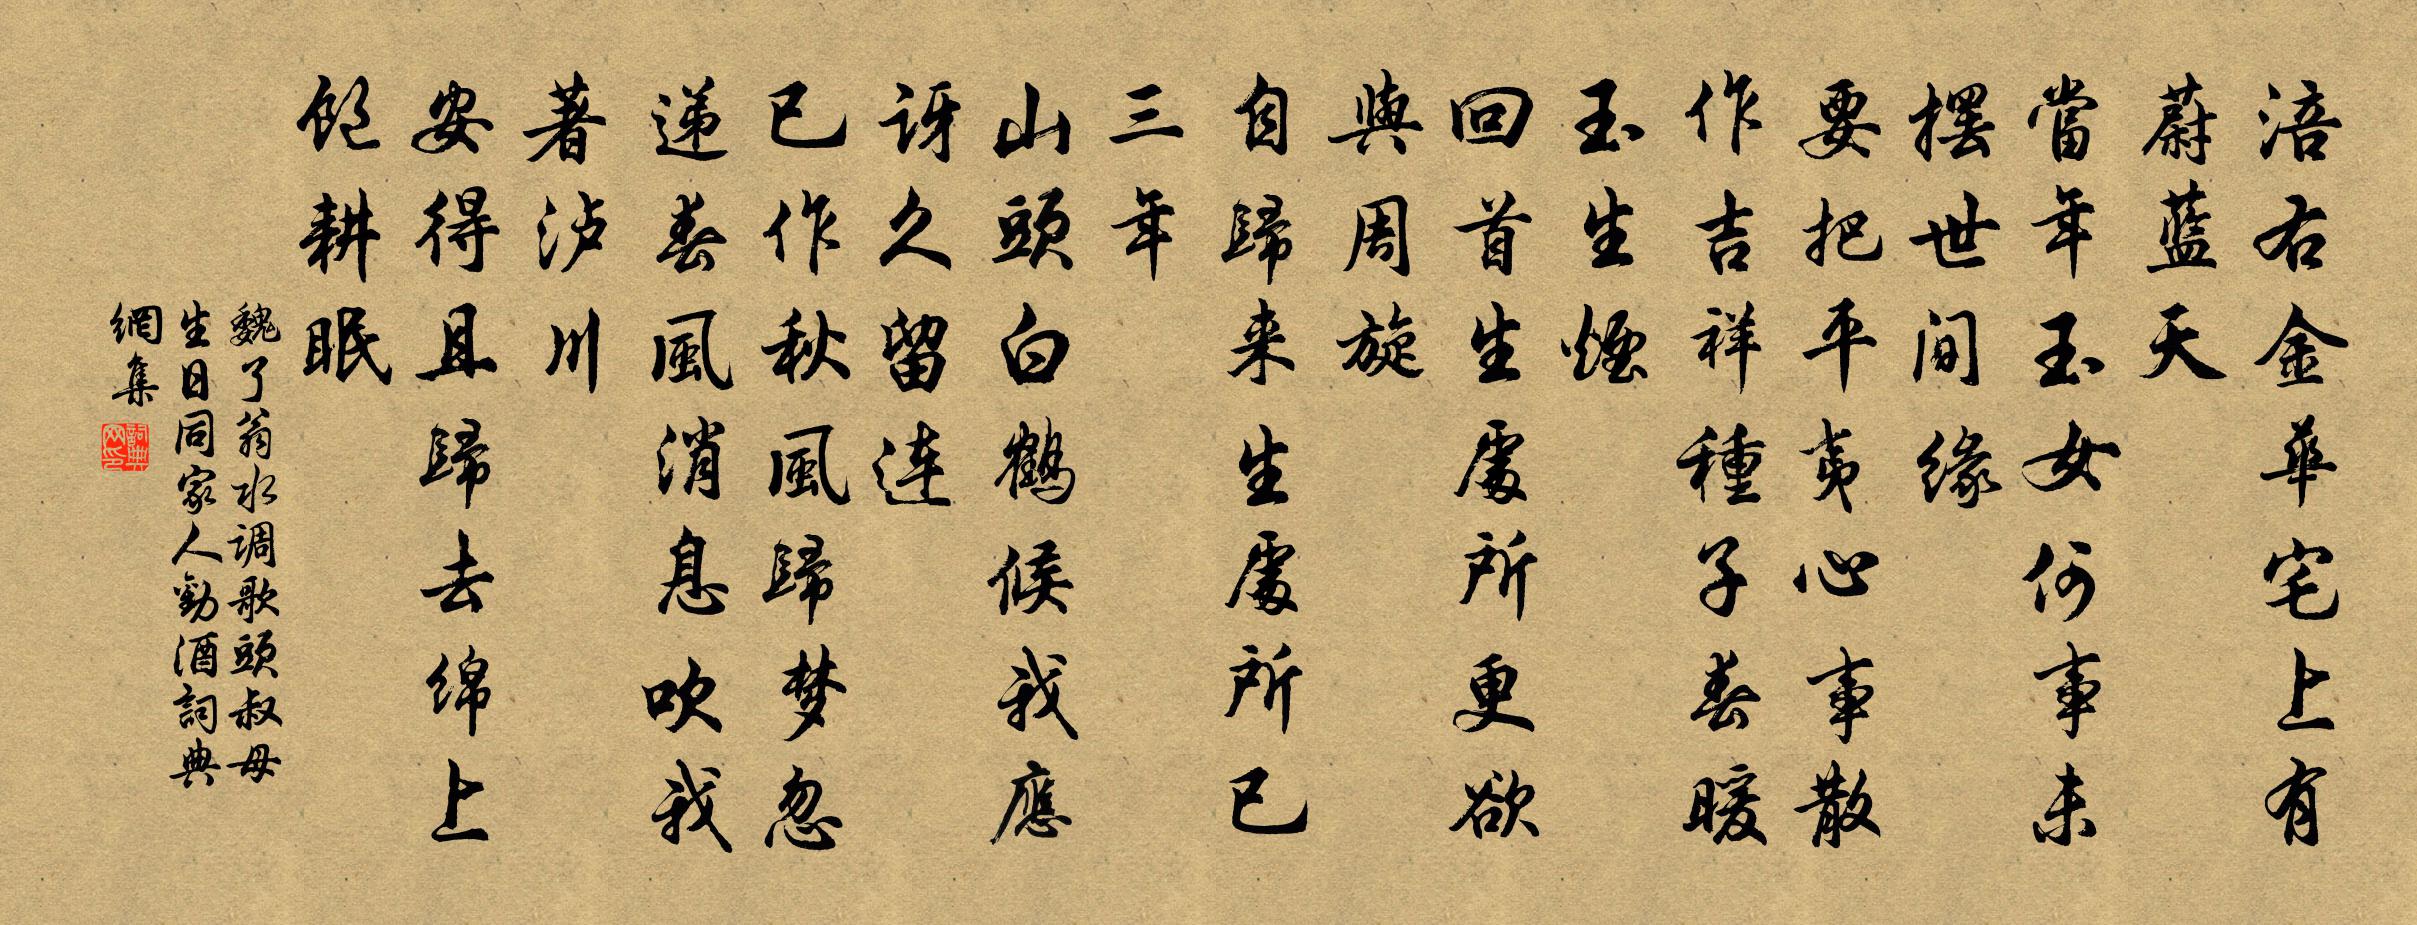 涪右金華宅上有
蔚藍天
當年玉女何事未
擺世間緣
要把平夷心事散
作吉祥種子春暖
玉生煙
回首生處所更欲
與周旋
自歸来生處所已
三年
山頭白鶴候我應
訝久留连
已作秋風歸梦忽
递春風消息吹我
著泸川
安得且歸去绵上
飽耕眠
魏了翁水调歌頭叔母
生日同家人勸酒詞典
網集
詞典
网印